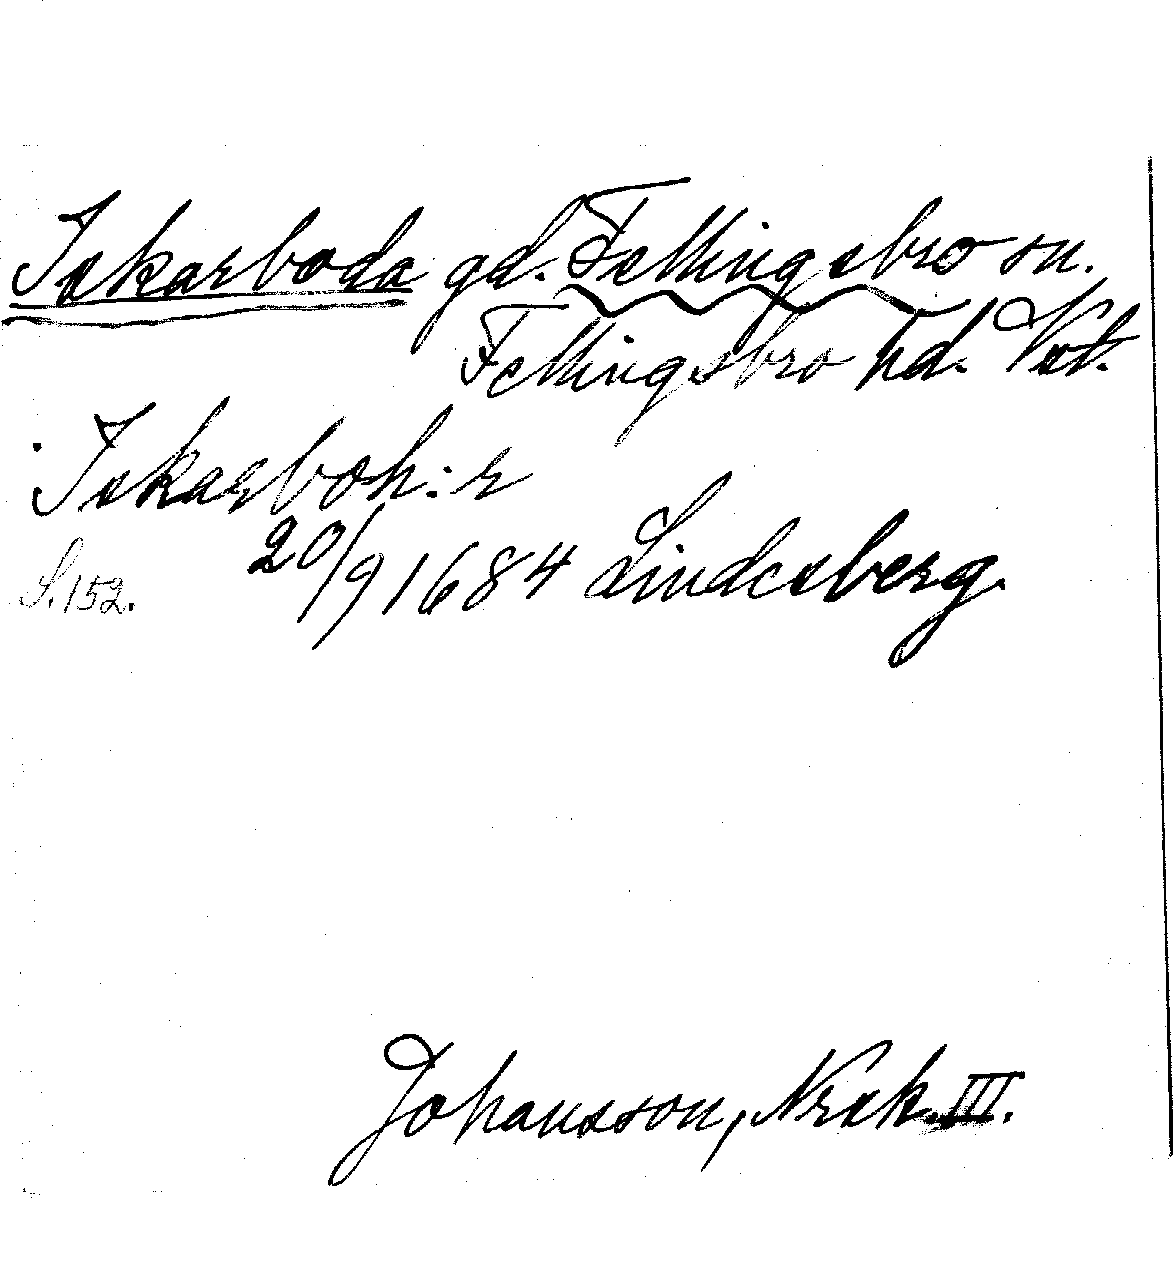 Iskarboda gd. Fellingsbro sn.
Fellingsbro hd. Vstl.
Iskarboh:r
20/9 1684 Lindesberg.
S. 152.
Johansson, Nrsk. III.